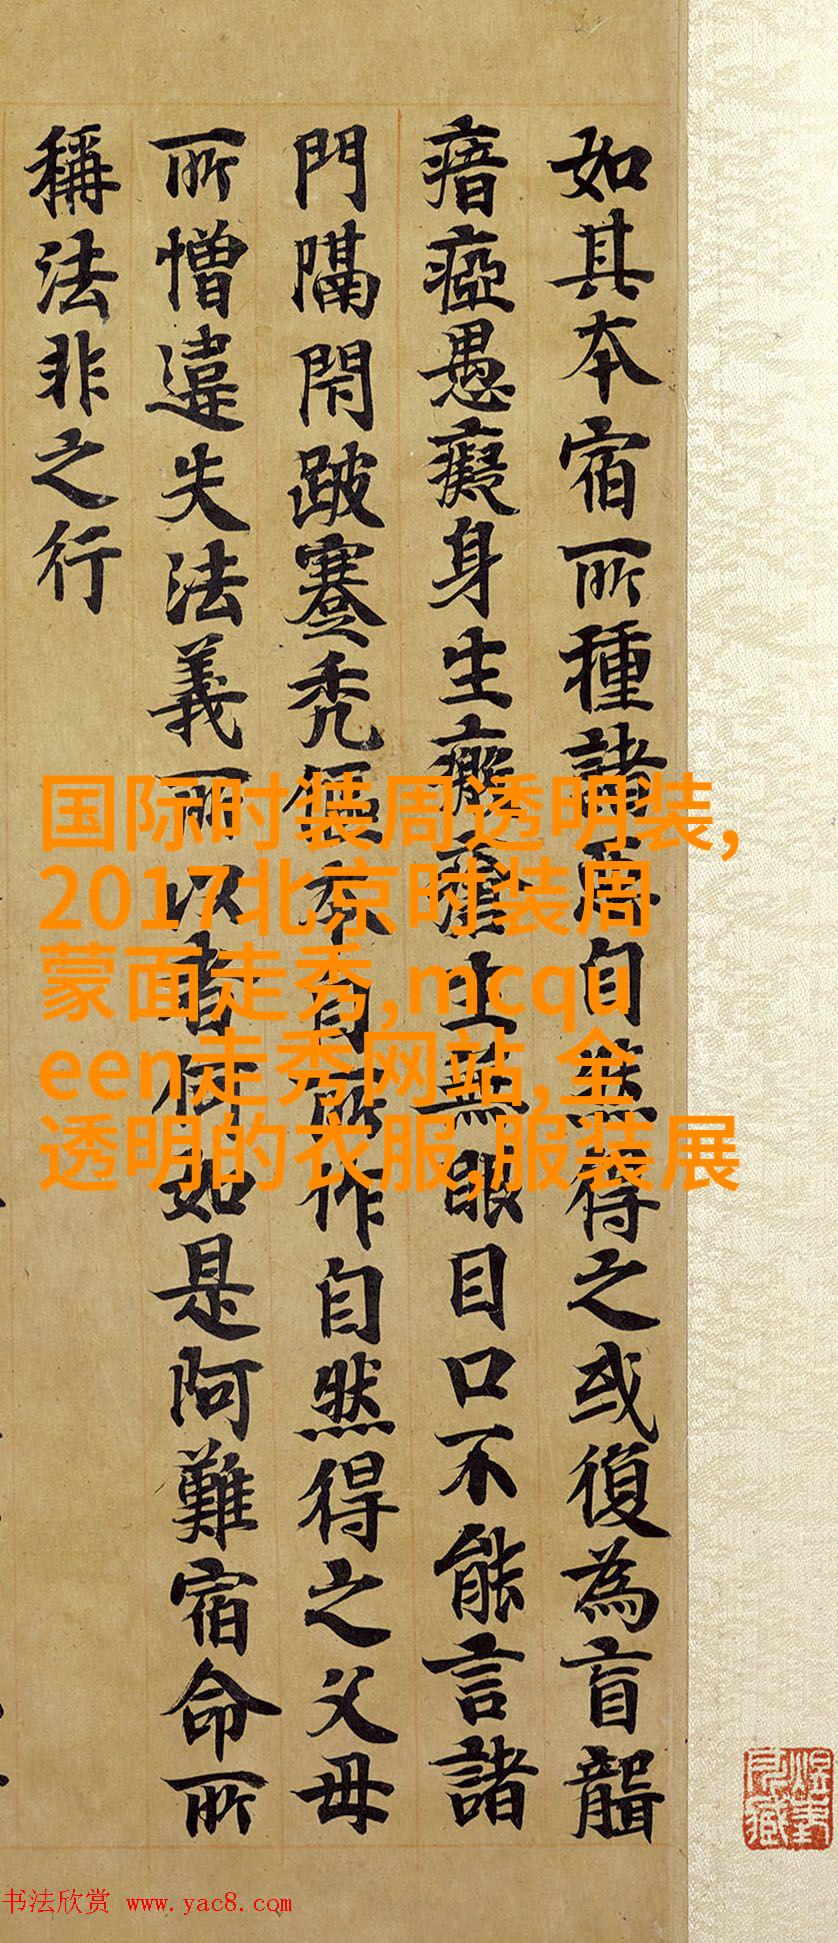 如其本宿所種諸惡自然得之或復為盲聾
瘖瘂愚癡身生癰瘡生無眼目口不能言諸
門隔閇跛蹇秃傴本自所作自然得之父母
所憎違失法義所以者何如是阿難宿命所
稱法非之行
国际时装周透明装,
2017北京时装周
蒙面走秀,mcqu
een走秀网站,全
透明的衣服,服装展
书法欣赏 www.yac8.com